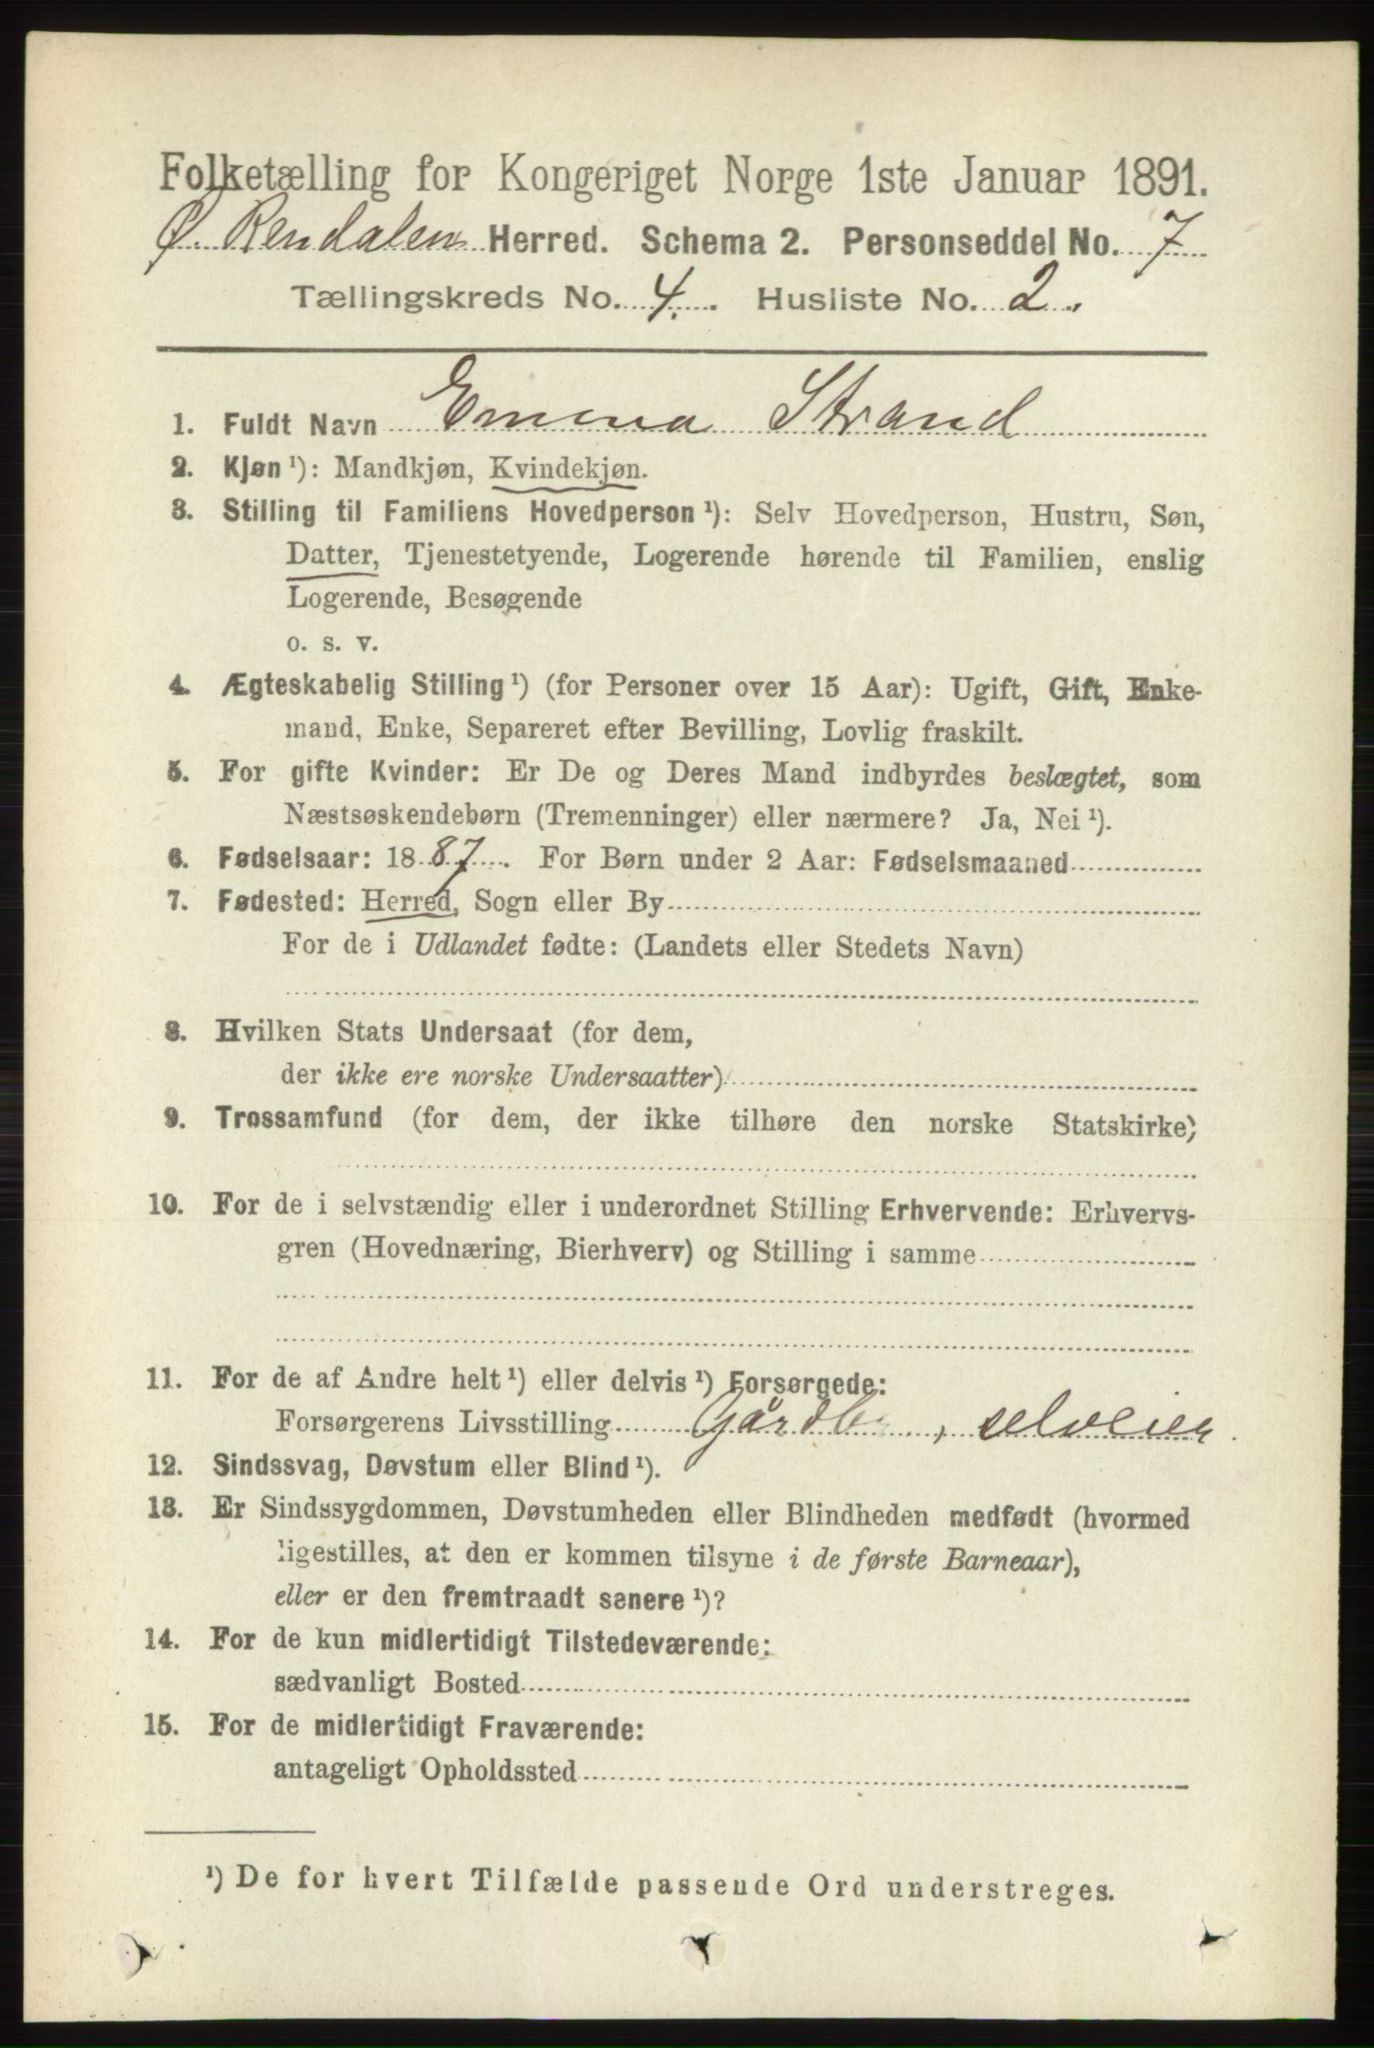 Folketælling for Kongeriget Norge 1ste Januar 1891.
Ø. Rendalen Herred. Schema 2. Personseddel No. 7
Tællingskreds No. 4. Husliste No. 2.
1. Fuldt Navn Emma Strand
2. Kjøn ¹): Mandkjøn, Kvindekjøn.
3. Stilling til Familiens Hovedperson ¹): Selv Hovedperson, Hustru, Søn,
Datter, Tjenestetyende, Logerende hørende til Familien, enslig
Logerende, Besøgende
o. s. v.
4. Ægteskabelig Stilling ¹) (for Personer over 15 Aar): Ugift, Gift, Enke-
mand, Enke, Separeret efter Bevilling, Lovlig fraskilt.
5. For gifte Kvinder: Er De og Deres Mand indbyrdes beslægtet, som
Næstsøskendebørn (Tremenninger) eller nærmere? Ja, Nei ¹).
6. Fødselsaar: 1887. For Børn under 2 Aar: Fødselsmaaned
7. Fødested: Herred, Sogn eller By
For de i Udlandet fødte: (Landets eller Stedets Navn)
8. Hvilken Stats Undersaat (for dem,
der ikke ere norske Undersaatter)
9. Trossamfund (for dem, der ikke tilhøre den norske Statskirke)
10. For de i selvstændig eller i underordnet Stilling Erhvervende: Erhvervs-
gren (Hovednæring, Bierhverv) og Stilling i samme
11. For de af Andre helt ¹) eller delvis ¹) Forsørgede:
Forsørgerens Livsstilling Gårdbr, selveier.
12. Sindssvag, Døvstum eller Blind ¹).
13. Er Sindssygdommen, Døvstumheden eller Blindheden medfødt (hvormed
ligestilles, at den er kommen tilsyne i de første Barneaar),
eller er den fremtraadt senere ¹)?
14. For de kun midlertidigt Tilstedeværende:
sædvanligt Bosted
15. For de midlertidigt Fraværende:
antageligt Opholdssted
¹) De for hvert Tilfælde passende Ord understreges.